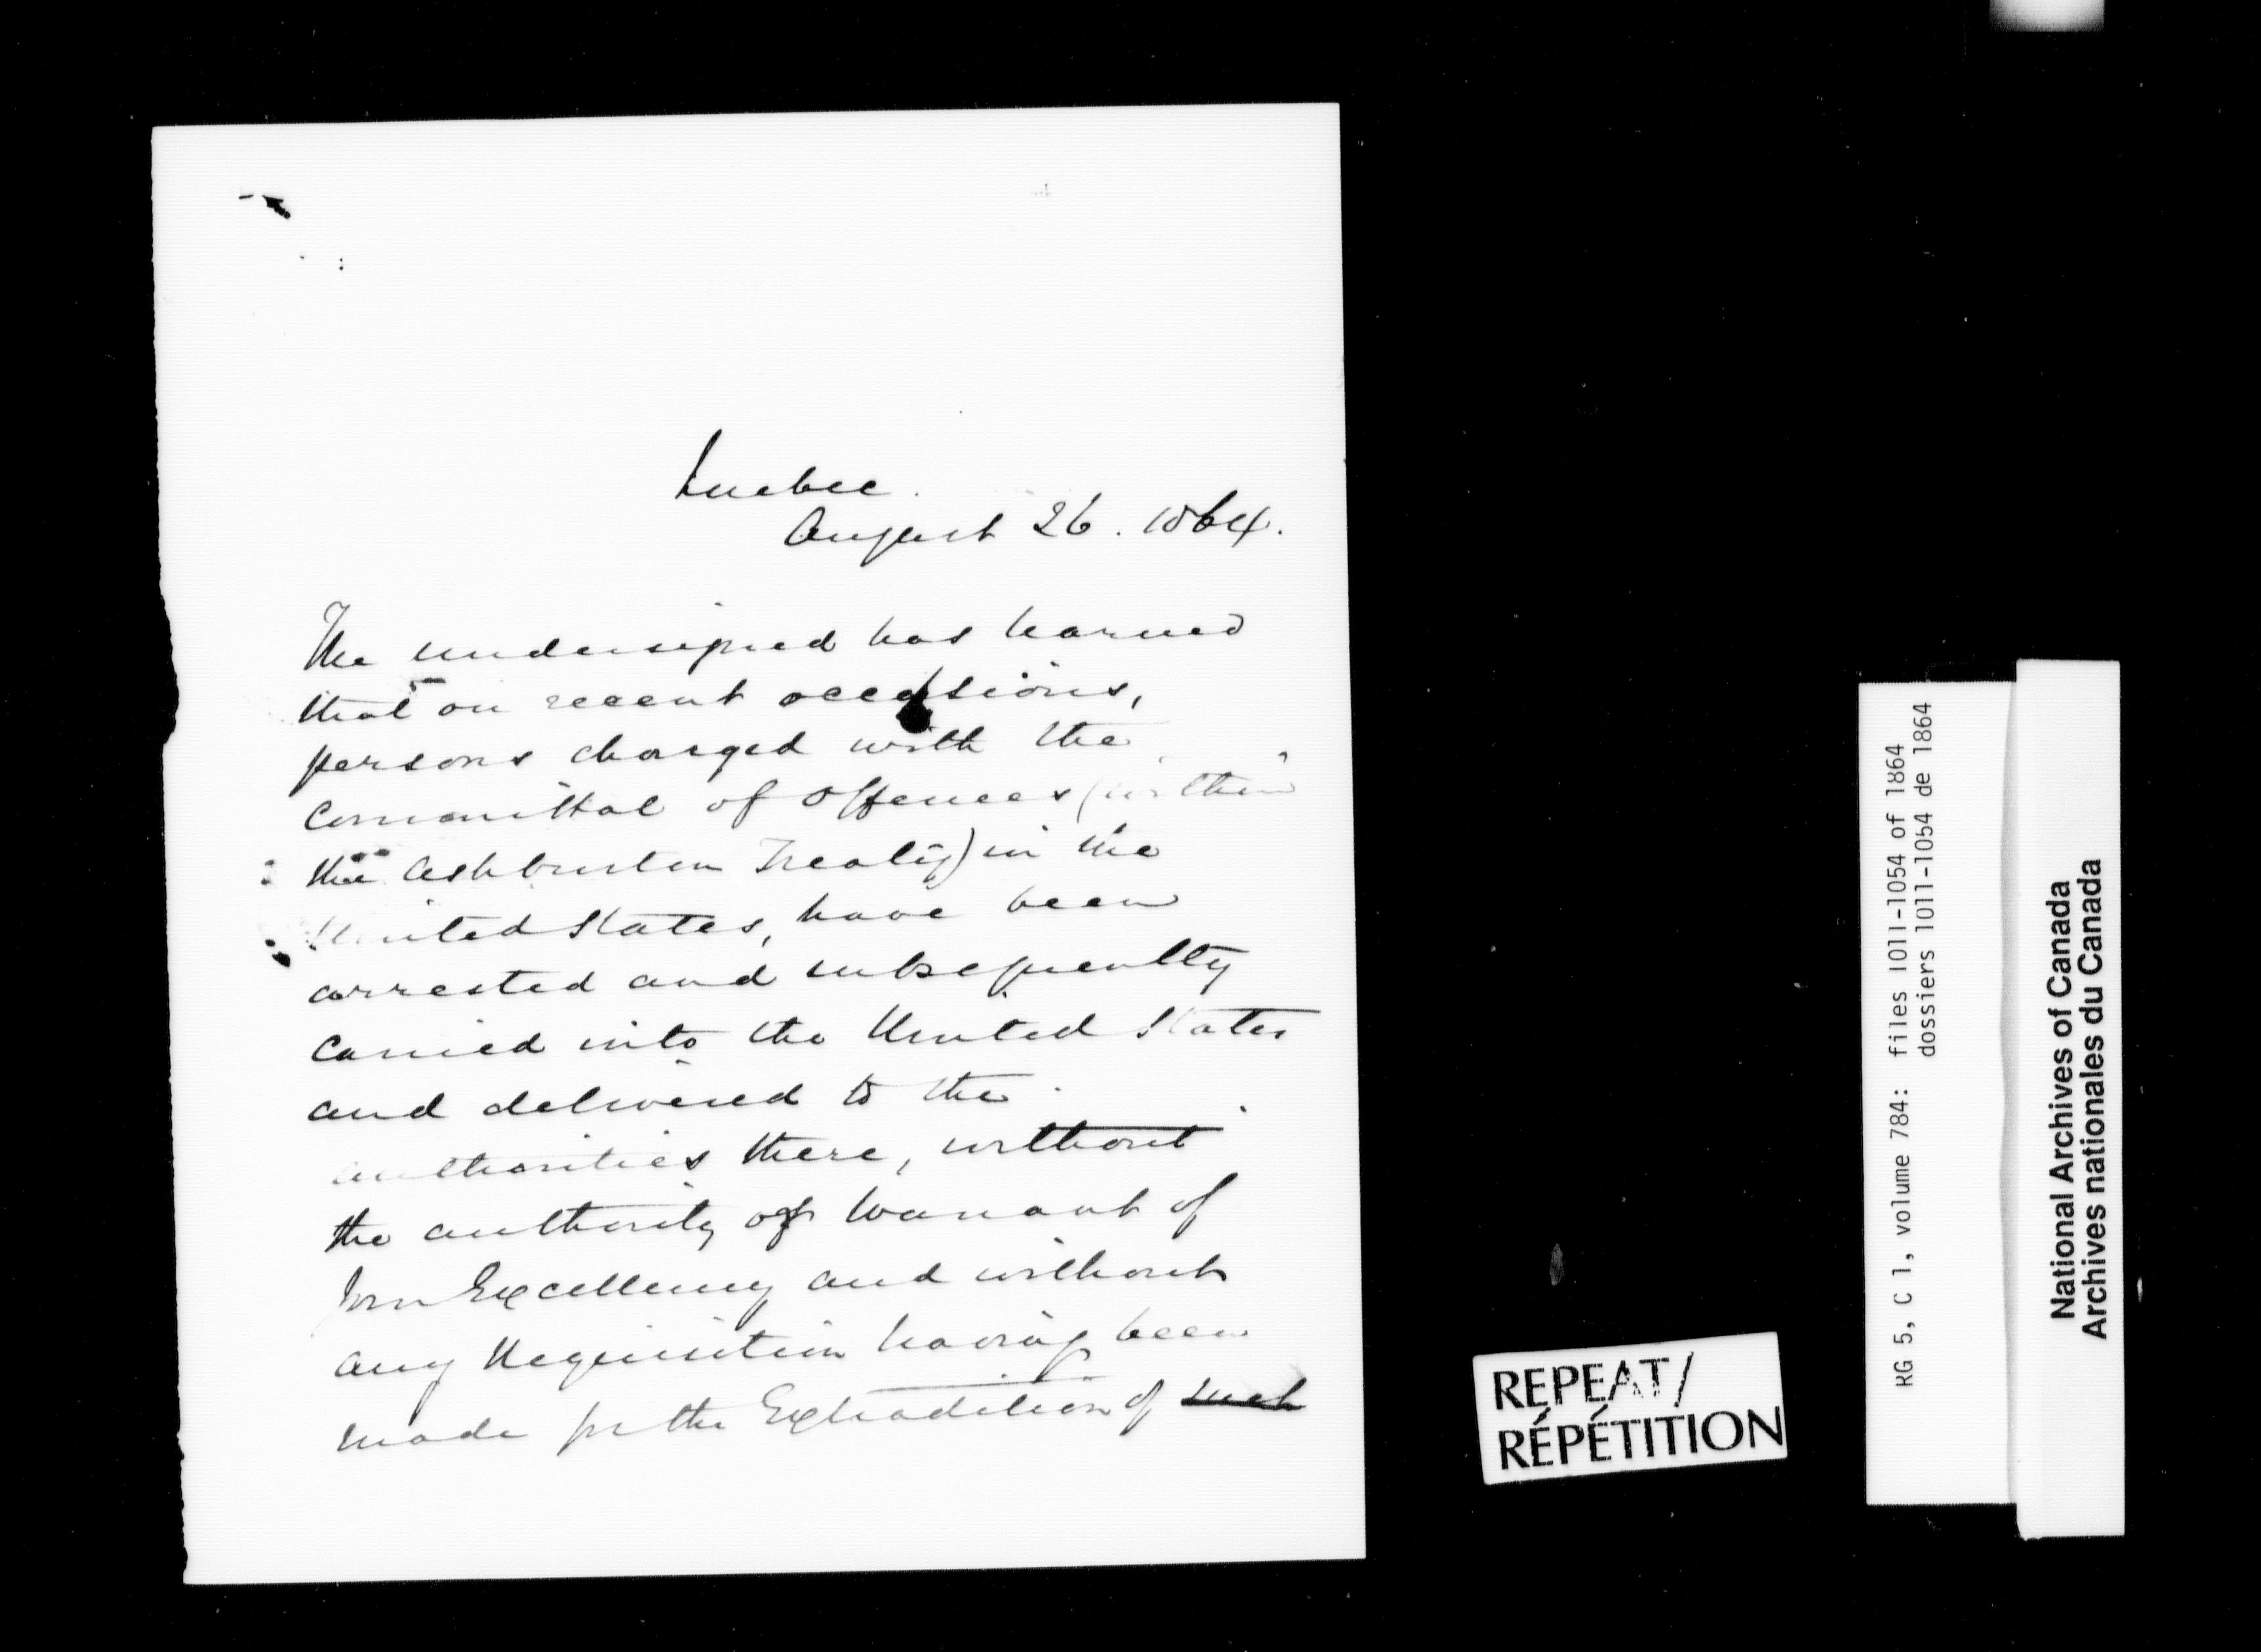 Quebec.
August 26. 1864.
The undersigned has learned
that on recent occasions,
persons charged with the
Committal of Offences (within
the Ashburton Treaty) in the
United States, have been
arrested and subsequently
carried into the United States
and delivered to the
authorities there, without
the authority or Warrant of
Your Excellency and without
any Requisition having been
made for the Extradition of such
REPEAT/
RÉPÉTITION
RG 5, C 1, volume 784: files 1011-1054 of 1864
dossiers 1011-1054 de 1864
National Archives of Canada
Archives nationales du Canada